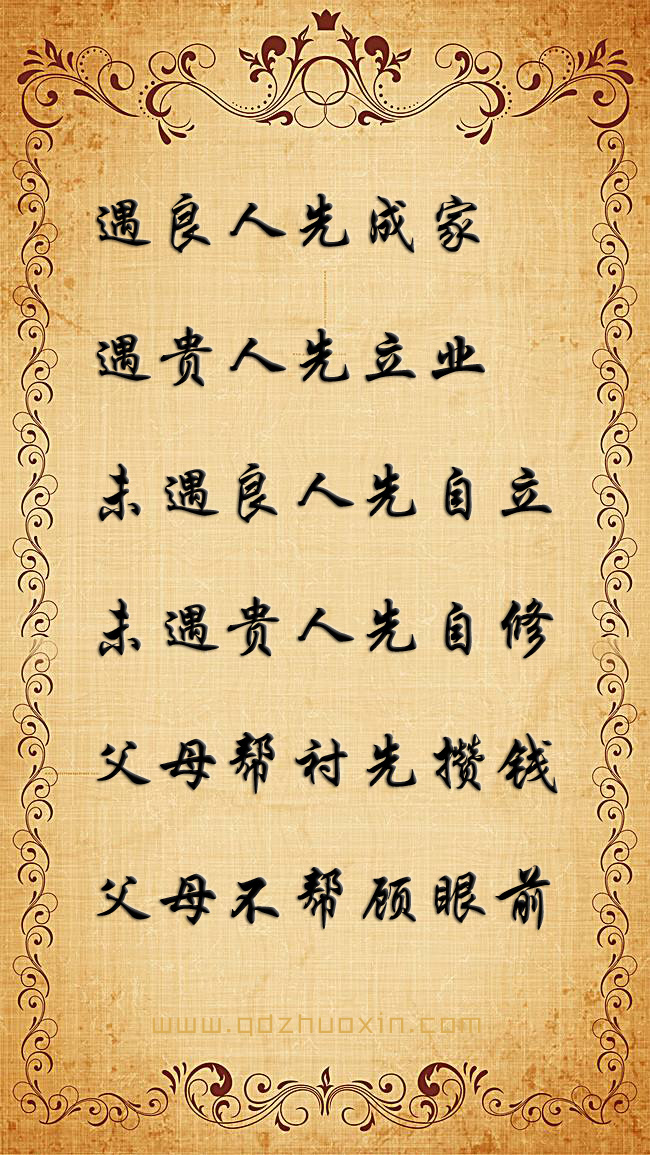 遇良人先成家
遇贵人先立业
未遇良人先自立
未遇贵人先自修
父母帮衬先攒钱
父母不帮顾眼前
www.qdzhuoxin.co